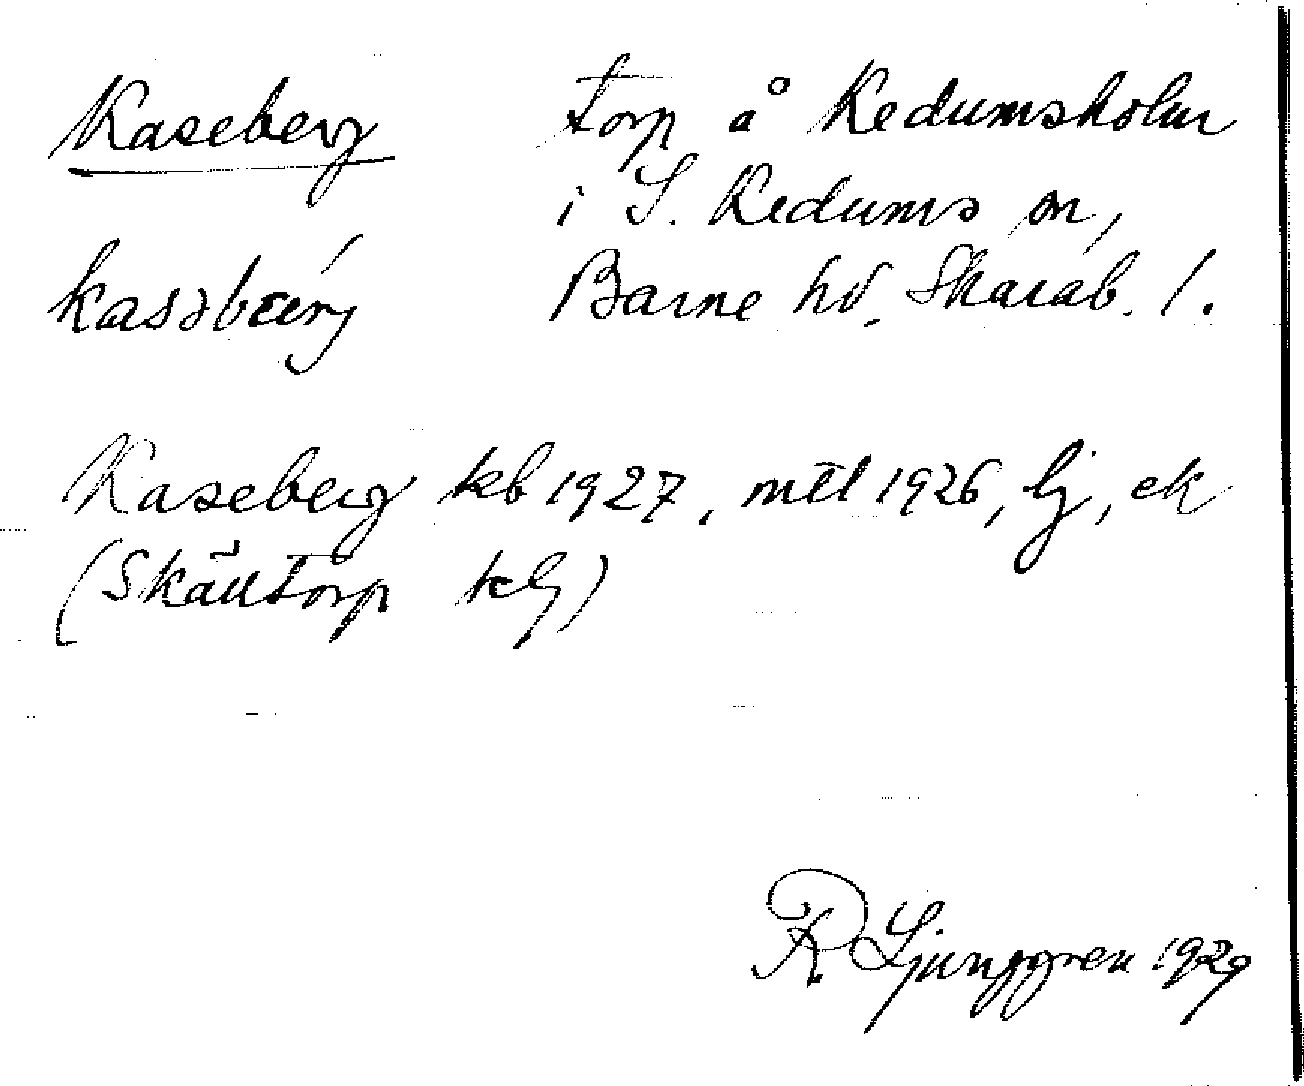 Kaseberg torp å Kedumsholm
i S. Kedums sn,
Barne hd. Skarab. l.
Kaseberg kb 1927, mtl 1926, lj, ek
(Skäutorp kg)
R Ljunggren 1929